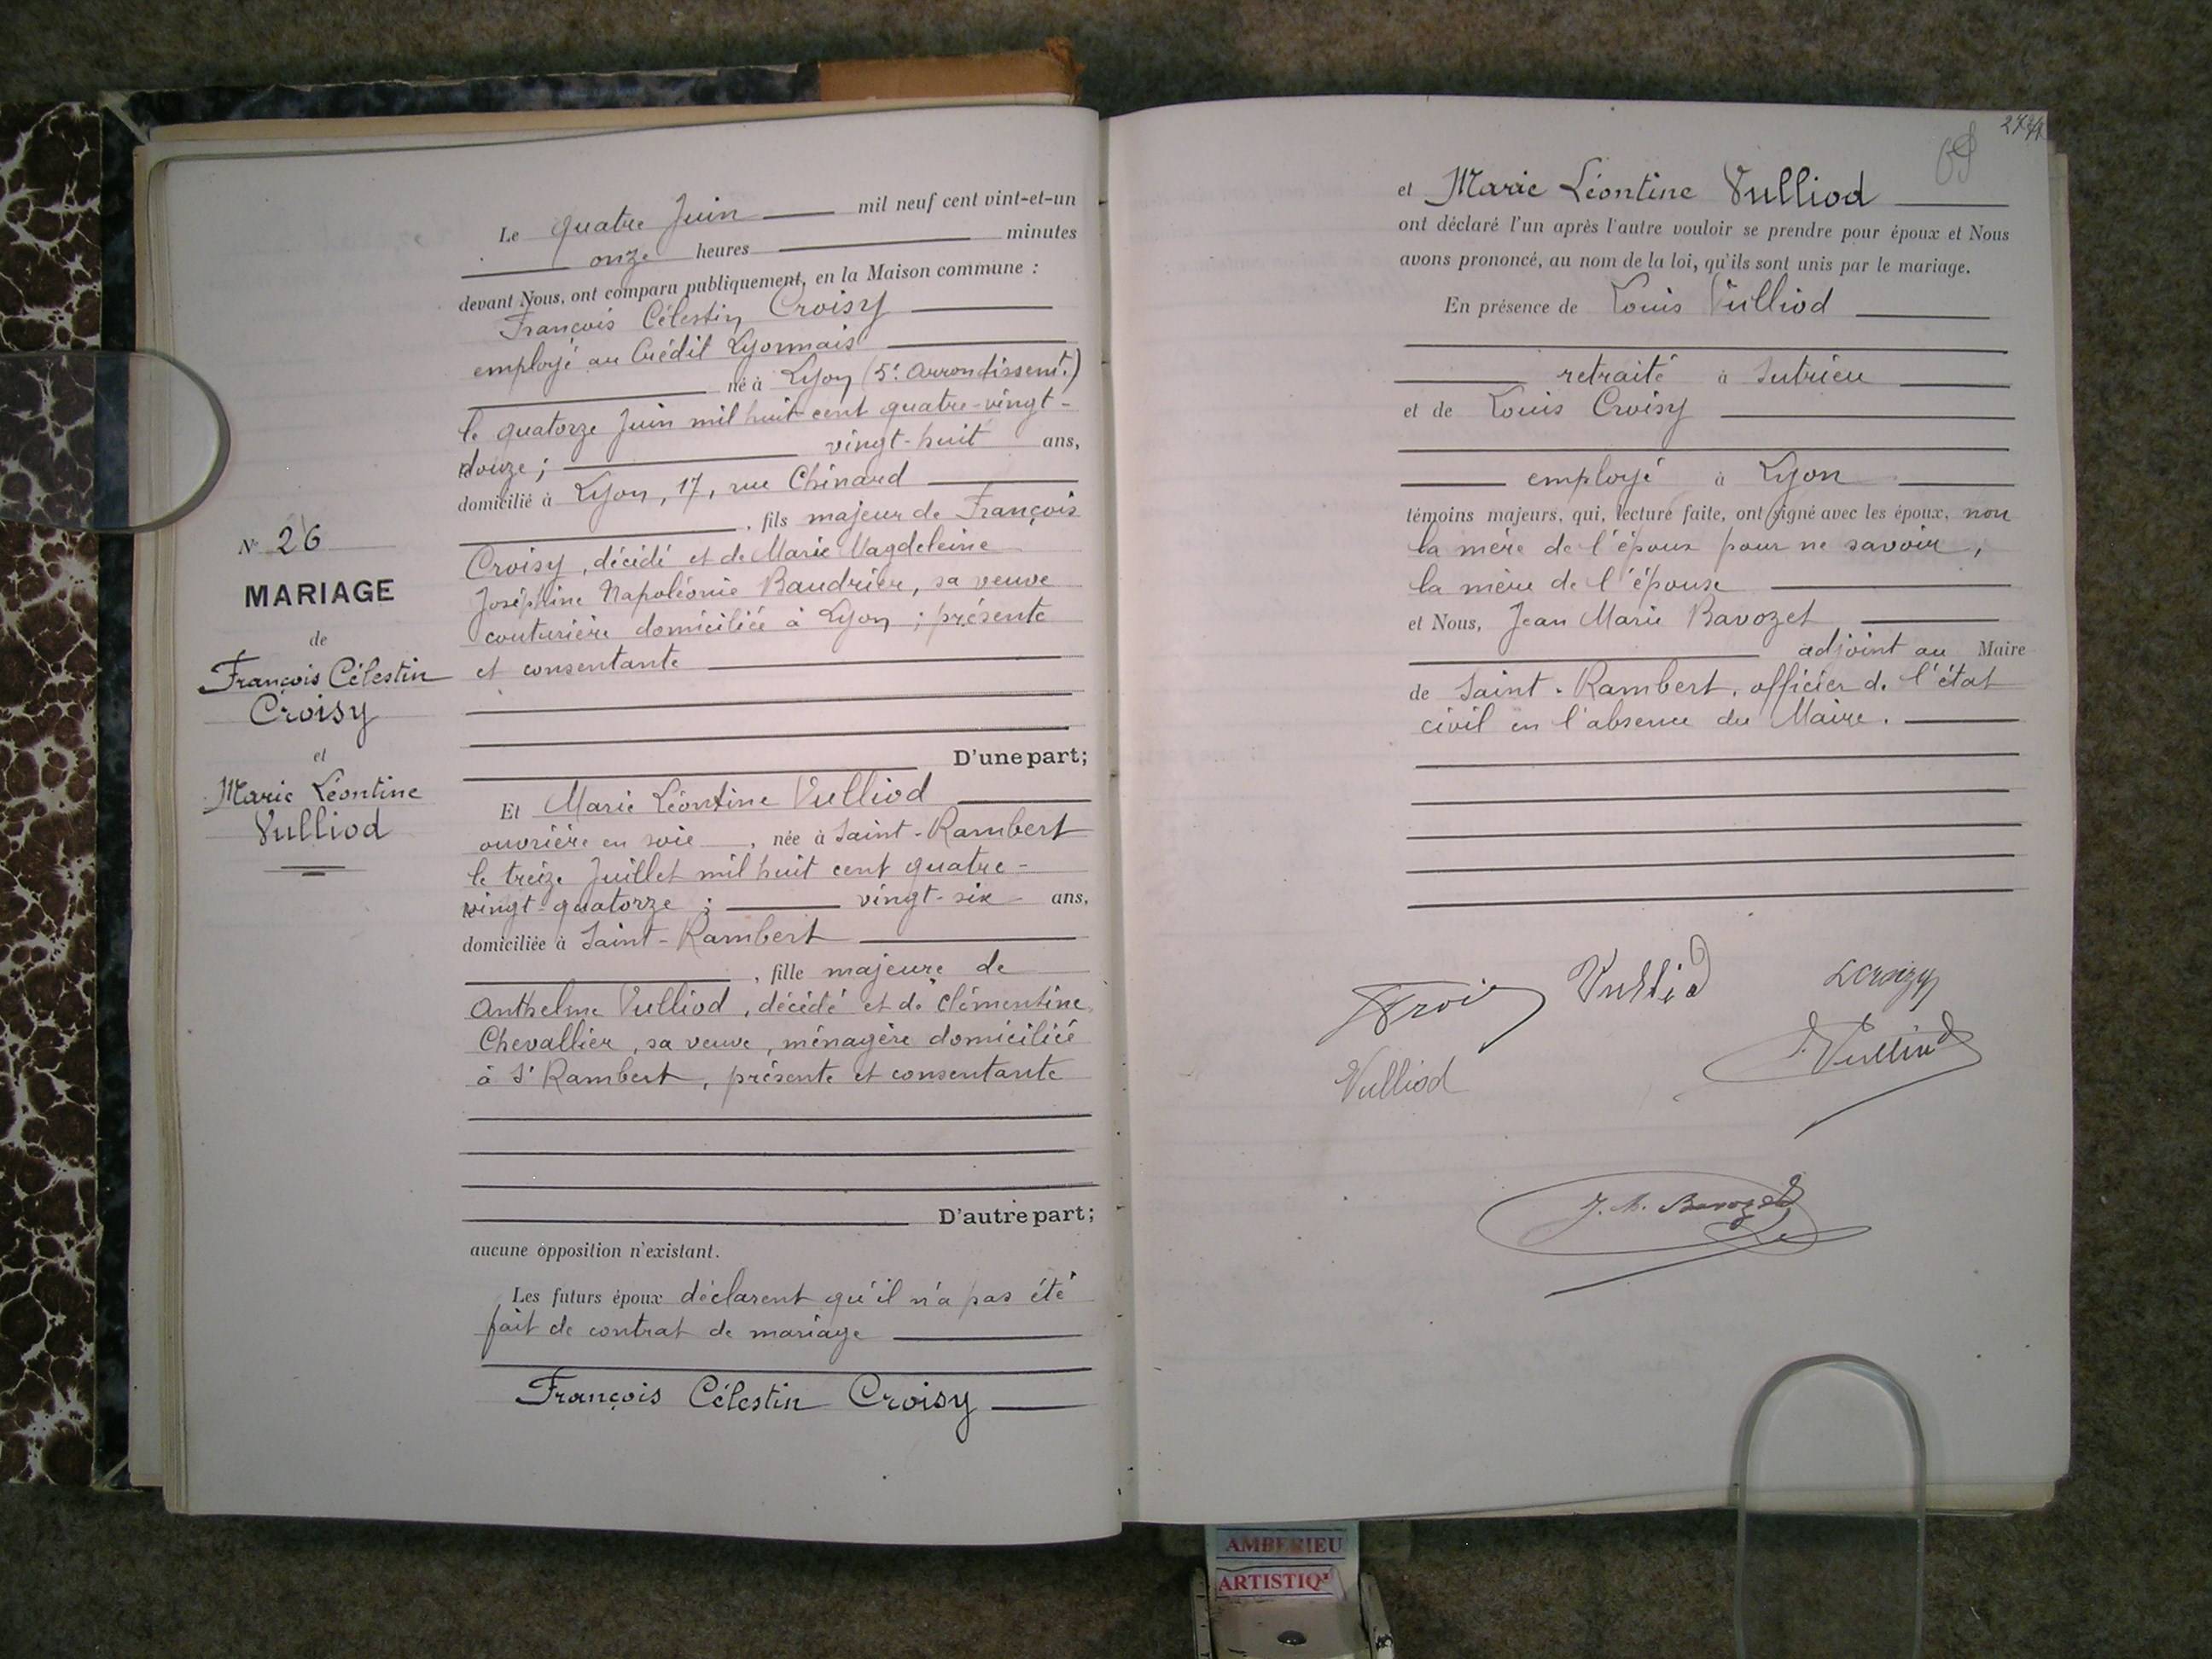 N° 26
MARIAGE
de
François Célestin
Croisy
et
Marie Léontine
Vulliod
Le quatre Juin mil neuf cent vint-et-un
onze heures minutes
devant Nous, ont comparu publiquement, en la Maison commune :
François Célestin Croisy
employé au Crédit Lyonnais
né à Lyon (5e Arrondissemt.)
le quatorze Juin mil huit cent quatre-vingt-
douze ; vingt-huit ans,
domicilié à Lyon, 17, rue Chinard
, fils majeur de François
Croisy, décédé et de Marie Magdeleine
Joséphine Napoléonie Baudrier, sa veuve
couturière domiciliée à Lyon ; présente
et consentante
D'une part;
Et Marie Léontine Vulliod
ouvrière en soie, née à Saint-Rambert
le treize Juillet mil huit cent quatre-
vingt-quatorze ; vingt-six ans,
domiciliée à Saint-Rambert
, fille majeure de
Anthelme Vulliod, décédé et de Clémentine
Chevallier, sa veuve, ménagère domiciliée
à St Rambert, présente et consentante
D'autre part;
aucune opposition n'existant.
Les futurs époux déclarent qu'il n'a pas été
fait de contrat de mariage
François Célestin Croisy
et Marie Léontine Vulliod
ont déclaré l'un après l'autre vouloir se prendre pour époux et Nous
avons prononcé, au nom de la loi, qu'ils sont unis par le mariage.
En présence de Louis Vulliod
retraité à Sutrieu
et de Louis Croisy
employé à Lyon
témoins majeurs, qui, lecture faite, ont signé avec les époux, non
la mère de l'époux pour ne savoir,
la mère de l'épouse
et Nous, Jean Marie Bavozet
adjoint au Maire
de Saint-Rambert, officier de l'état
civil en l'absence du Maire.
Vulliod
L Croizy
Vulliod
Vulliod
J. M. Bavozet
AMBERIEU
ARTISTIQ